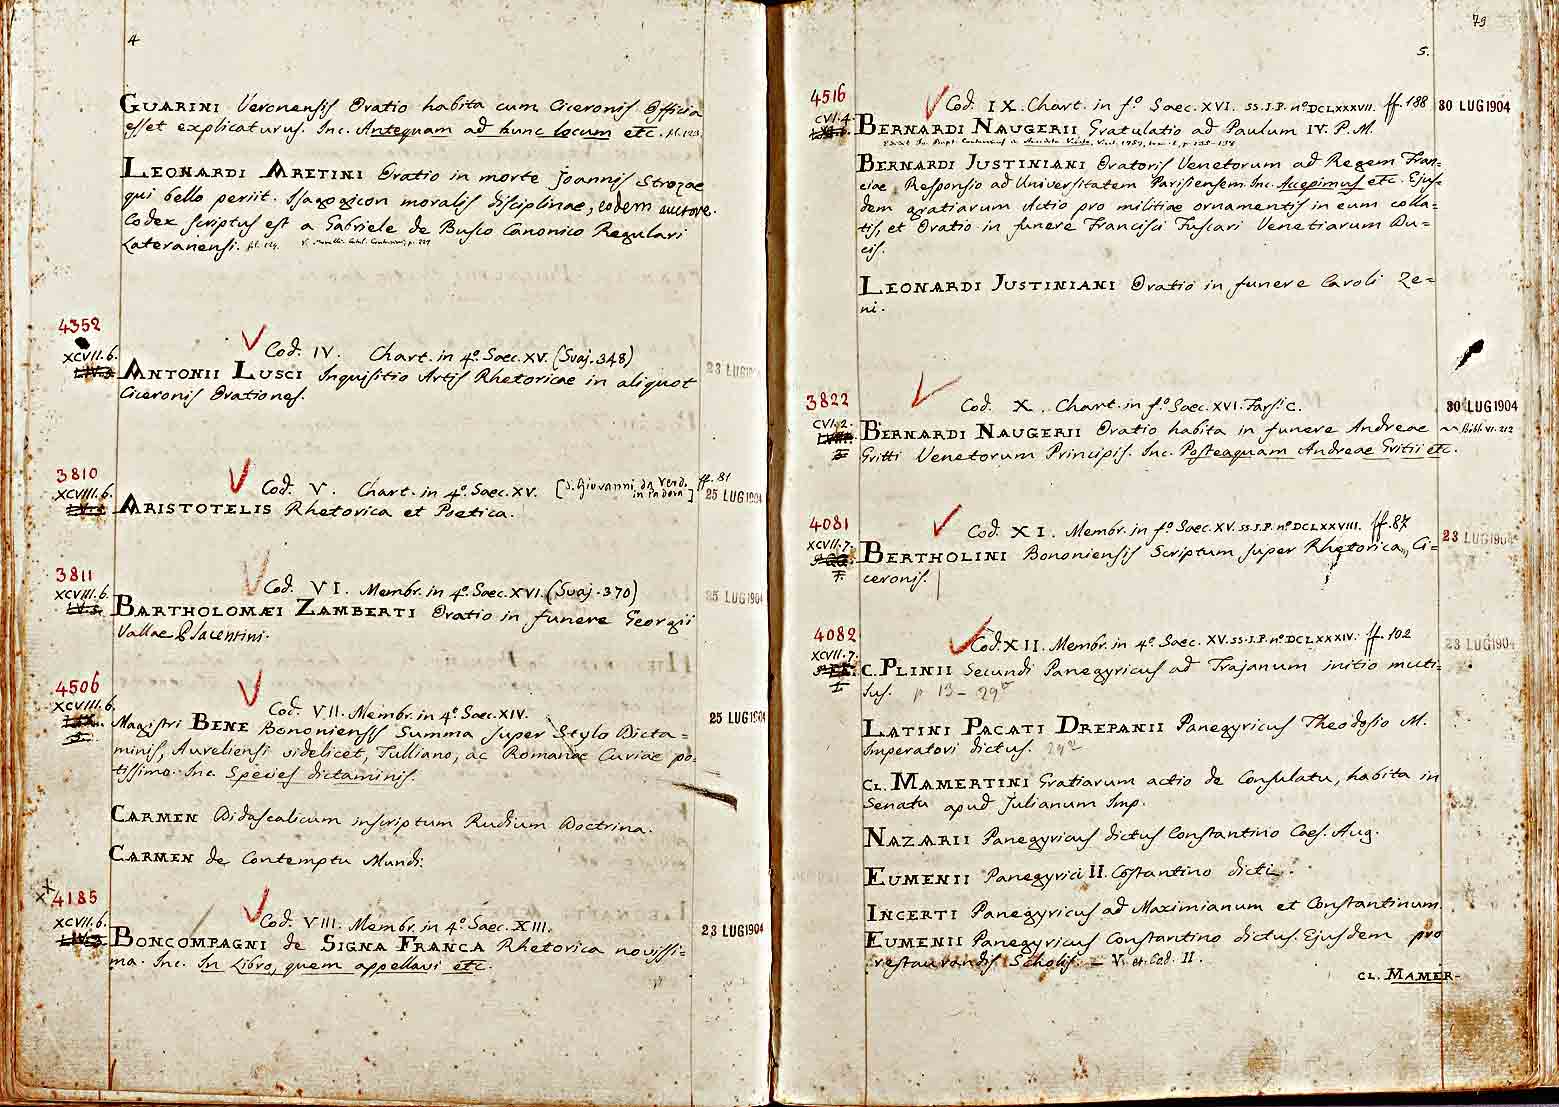 4
GUARINI Veronensis Oratio habita cum Ciceronis Officia
esset explicaturus. Inc. Antequam ad hunc locum etc. fol. 123.
LEONARDI ARETINI Oratio in morte Joannis Strozae
qui bello periit. Isagogicon moralis disciplinae, eodem auctore.
Codex scriptus est a Gabriele de Busco Canonico Regulari
Lateranensi. fol. 124.
4352
XCVII.6.
Cod. IV. Chart. in 4º. Saec. XV. (Svaj. 348)
23 LUG 1904
ANTONII LUSCI Inquisitio Artis Rhetoricae in aliquot
Ciceronis Orationes.
3810
XCVIII.6.
Cod. V. Chart. in 4º. Saec. XV. [S. Giovanni da Verd. in Padova] ff. 81
25 LUG 1904
ARISTOTELIS Rhetorica et Poetica.
3811
XCVIII.6.
Cod. VI. Membr. in 4º. Saec. XVI. (Svaj. 370)
25 LUG 1904
BARTHOLOMÆI ZAMBERTI Oratio in funere Georgii
Vallae Placentini.
4506
XCVIII.6.
Cod. VII. Membr. in 4º. Saec. XIV.
25 LUG 1904
Magistri BENE Bononiensis Summa super Stylo Dicta=
minis, Aureliensi videlicet, Tulliano, ac Romanae Curiae po=
tissimo. Inc. Species dictaminis.
CARMEN Didascalicum inscriptum Rudium Doctrina.
CARMEN de Contemptu Mundi.
4185
XCVII.6.
Cod. VIII. Membr. in 4º. Saec. XIII.
23 LUG 1904
BONCOMPAGNI de SIGNA FRANCA Rhetorica novissi=
ma. Inc. In Libro, quem appellavi etc.
79
5.
4516
CVI.4.
Cod. IX. Chart. in fº. Saec. XVI. SS.J.P. nº DCLXXXVII. ff. 188
30 LUG 1904
BERNARDI NAUGERII Gratulatio ad Paulum IV. P. M.
BERNARDI JUSTINIANI Oratoris Venetorum ad Regem Fran=
ciae Responsio ad Universitatem Parisiensem. Inc. Accepimus etc. Ejus=
dem gratiarum Actio pro militiae ornamentis in eum colla=
tis, et Oratio in funere Francisci Fuscari Venetiarum Du=
cis.
LEONARDI JUSTINIANI Oratio in funere Caroli Ze=
ni.
3822
CVI.2.
Cod. X. Chart. in fº. Saec. XVI. Fars. C.
30 LUG 1904
BERNARDI NAUGERII Oratio habita in funere Andreae
Gritti Venetorum Principis. Inc. Posteaquam Andreae Gritii etc.
4081
XCVII.7.
Cod. XI. Membr. in fº. Saec. XV. SS.J.P. nº DCLXXVIII. ff. 87
23 LUG 1904
BERTHOLINI Bononiensis Scriptum super Rhetorica Ci=
ceronis.
4082
XCVII.7.
Cod. XII. Membr. in 4º. Saec. XV. SS.J.P. nº DCLXXXIV. ff. 102
23 LUG 1904
C. PLINII Secundi Panegyricus ad Trajanum initio muti=
lus. p 13 - 29ª
LATINI PACATI DREPANII Panegyricus Theodosio M.
Imperatori dictus.
CL. MAMERTINI Gratiarum actio de Consulatu, habita in
Senatu apud Julianum Imp.
NAZARII Panegyricus dictus Constantino Caes. Aug.
EUMENII Panegyrici II. Costantino dicti.
INCERTI Panegyricus ad Maximianum et Constantinum.
EUMENII Panegyricus Constantino dictus. Ejusdem pro
restaurandis Scholis. — V. et Cod. II.
CL. MAMER-